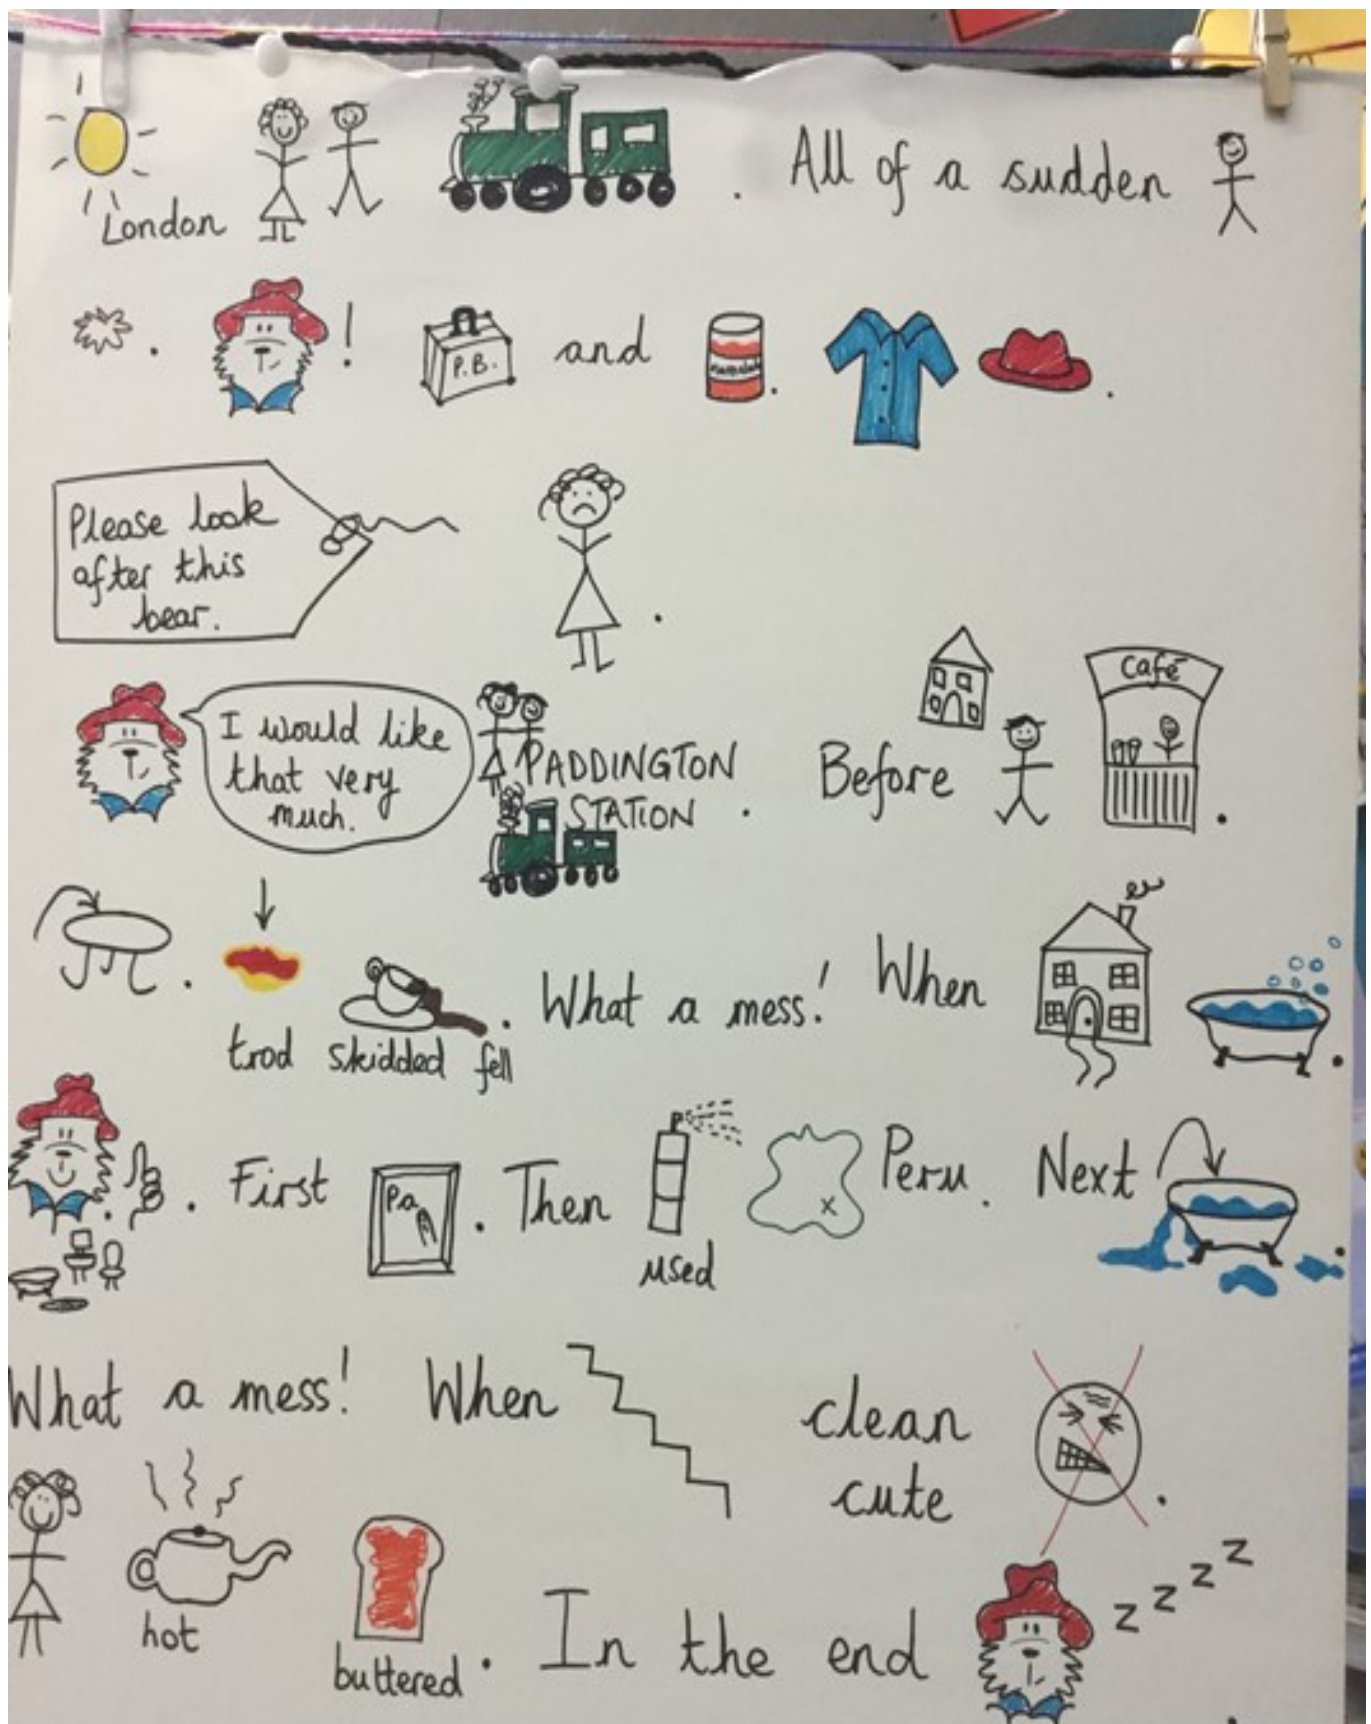 London . All of a sudden
. ! P.B. and marmalade . .
Please look
after this
bear. .
I would like
that very
much.
PADDINGTON
STATION .
Before
Café .
. trod skidded fell . What a mess! When .
. First Pa . Then used Peru. Next .
What a mess! When clean
cute .
hot buttered . In the end zzzz .